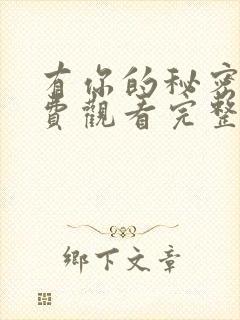 有你的秘密
費觀看完整
鄉下文章